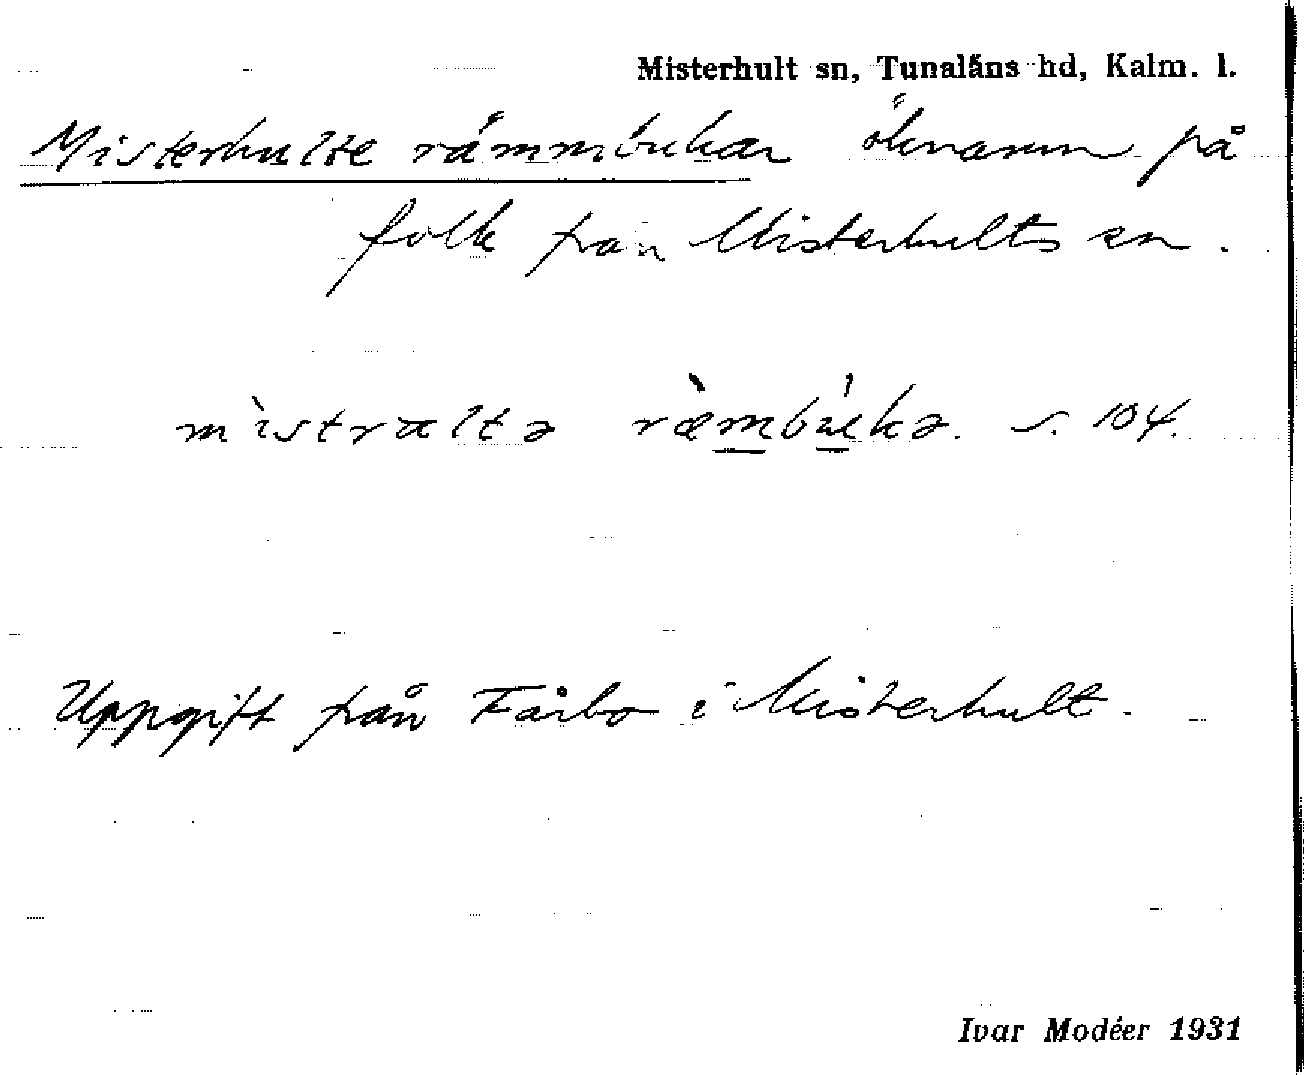 Misterhult sn, Tunaläns hd, Kalm. l.
Misterhulte rämmbukar öknamn på
folk från Misterhults sn.
mìstralta ræmbúka. s. 104.
Uppgift från Fårbo i Misterhult.
Ivar Modéer 1931